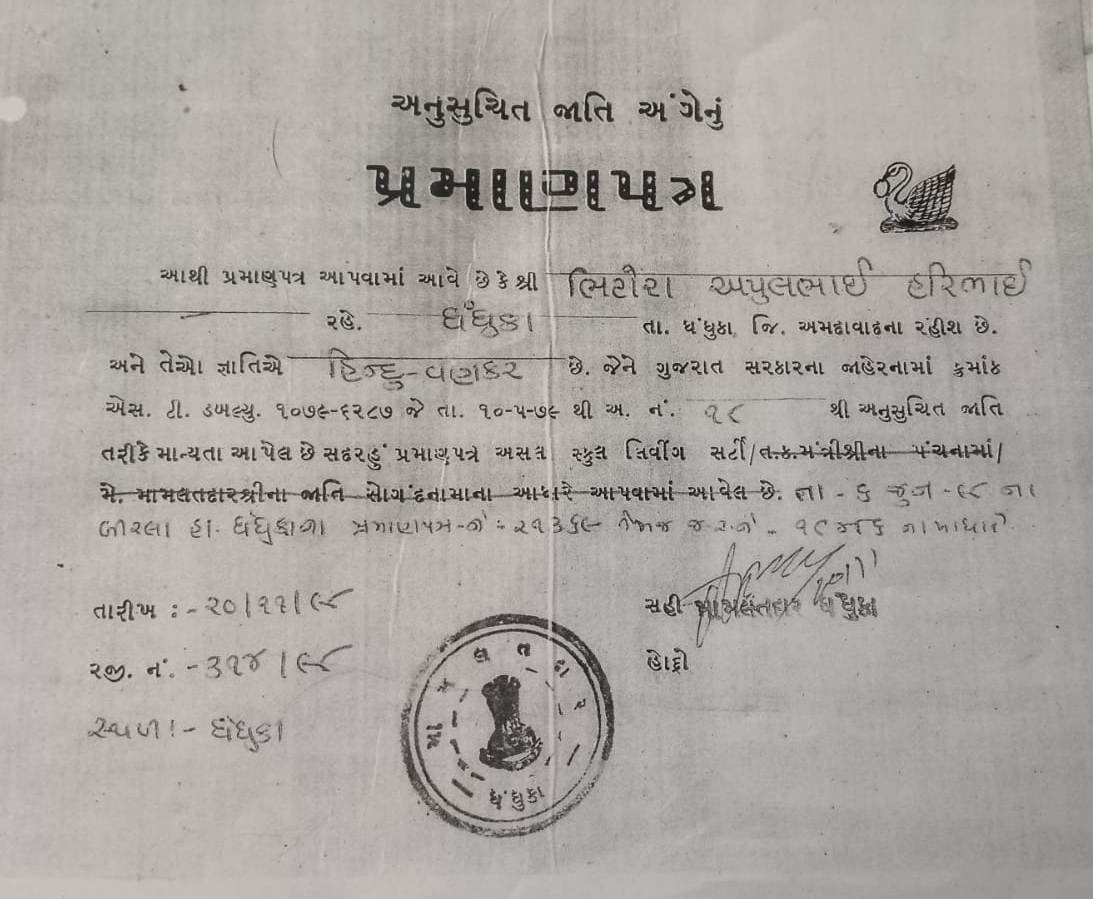 અનુસુચિત જાતિ અંગેનું
પ્રમાણપત્ર
આથી પ્રમાણપત્ર આપવામાં આવે છે કે શ્રી અપુલભાઈ હરિભાઈ
રહે. ધંધુકા તા. ધંધુકા, જિ. અમદાવાદના રહીશ છે.
અને તેઓ જ્ઞાતિએ હિન્દુ-વણકર છે. જેને ગુજરાત સરકારના જાહેરનામાં ક્રમાંક
એસ. ટી. ડબલ્યુ. ૧૦૭૯-૬૨૮૭ જે તા. ૧૦-૫-૭૯ થી અ. નં. ૧૮ થી અનુસુચિત જાતિ
તરીકે માન્યતા આપેલ છે સદરહું પ્રમાણપત્ર અસલ સ્કુલ લિવીંગ સર્ટી/ત.ક.મંત્રીશ્રીના પંચનામાં/
મે. મામલતદારશ્રીના જાતિ સોગંદનામાના આધારે આપવામાં આવેલ છે. તા - ૬ જુન - ૯૮ ના
બીરલા હા. ધંધુકાના પ્રમાણપત્ર નં :- ૨૧૩૬૯
તારીખ :- ૨૦/૧૧/૯૮
સહી મામલતદાર ધંધુકા
રજી. નં. - ૩૧૪/૯૮
હોદ્દો
સ્થળ :- ધંધુકા
મામલતદાર
ધંધુકા